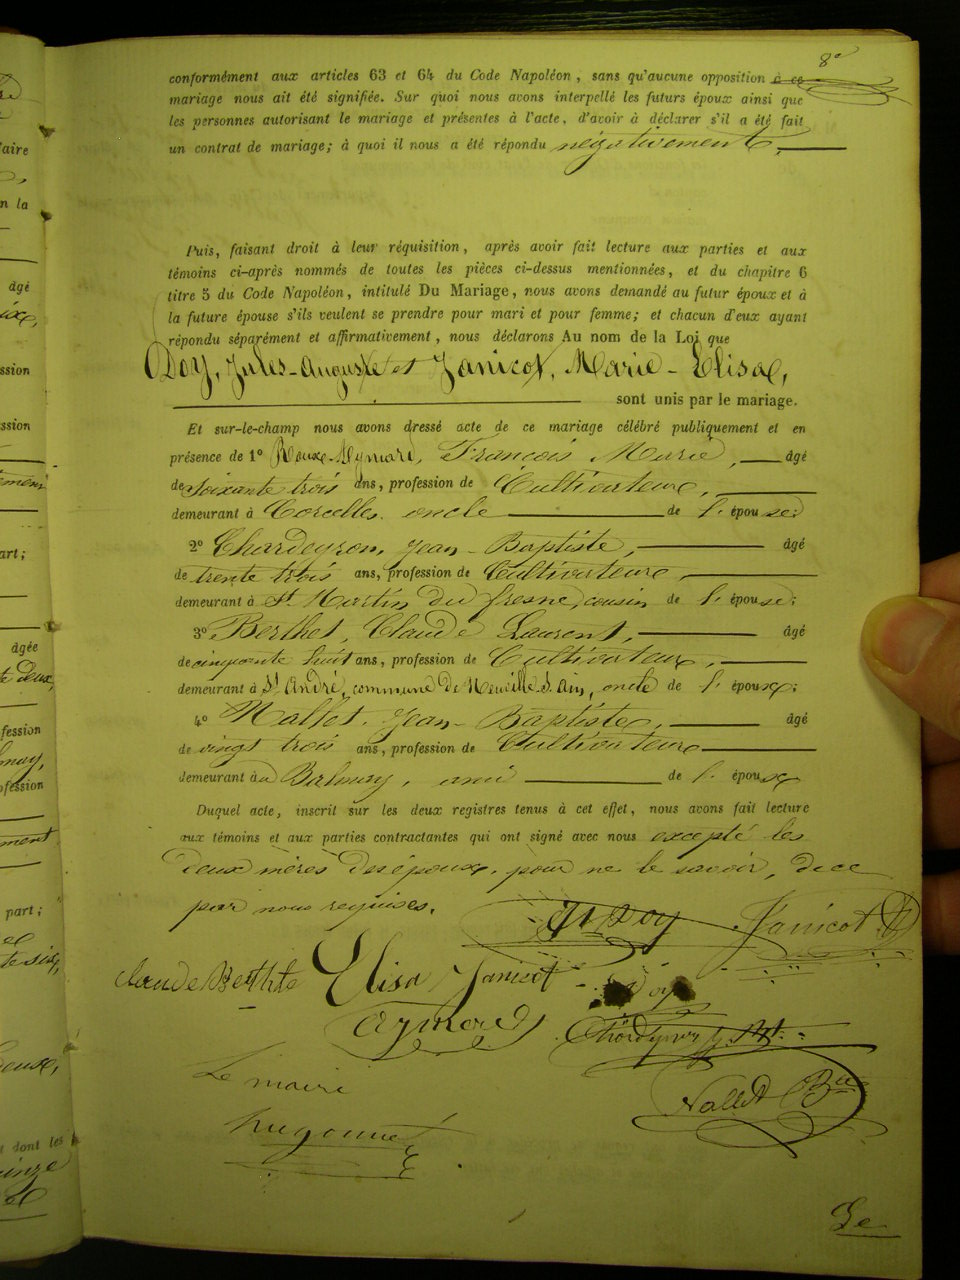 8e
conformément aux articles 63 et 64 du Code Napoléon, sans qu'aucune opposition à ce
mariage nous ait été signifiée. Sur quoi nous avons interpellé les futurs époux ainsi que
les personnes autorisant le mariage et présentes à l'acte, d'avoir à déclarer s'il a été fait
un contrat de mariage; à quoi il nous a été répondu négativement,
Puis, faisant droit à leur réquisition, après avoir fait lecture aux parties et aux
témoins ci-après nommés de toutes les pièces ci-dessus mentionnées, et du chapitre 6
titre 5 du Code Napoléon, intitulé Du Mariage, nous avons demandé au futur époux et à
la future épouse s'ils veulent se prendre pour mari et pour femme; et chacun d'eux ayant
répondu séparément et affirmativement, nous déclarons Au nom de la Loi que
Doy, Jules-Auguste et Janicot, Marie-Elisa,
sont unis par le mariage.
Et sur-le-champ nous avons dressé acte de ce mariage célébré publiquement et en
présence de 1º Roux-Aymard, François Marie, âgé
de soixante trois ans, profession de Cultivateur,
demeurant à Corcelles, oncle de l'épouse;
2º Chardeyron, Jean-Baptiste, âgé
de trente trois ans, profession de Cultivateur,
demeurant à St Martin du fresne, cousin de l'épouse;
3º Berthet, Claude Laurent, âgé
de cinquante huit ans, profession de Cultivateur,
demeurant à St André, commune de Neuville s. Ain, oncle de l'épouse;
4º Nallet, Jean-Baptiste, âgé
de vingt trois ans, profession de Cultivateur
demeurant à ami de l'épouse
Duquel acte, inscrit sur les deux registres tenus à cet effet, nous avons fait lecture
aux témoins et aux parties contractantes qui ont signé avec nous excepté les
deux mères des époux, pour ne le savoir, de ce
par nous requises.
Doy Janicot
Claude Berthte Elisa Janicot Doy
Aymard
Le maire
Nallet Bte
hugonnet
Le